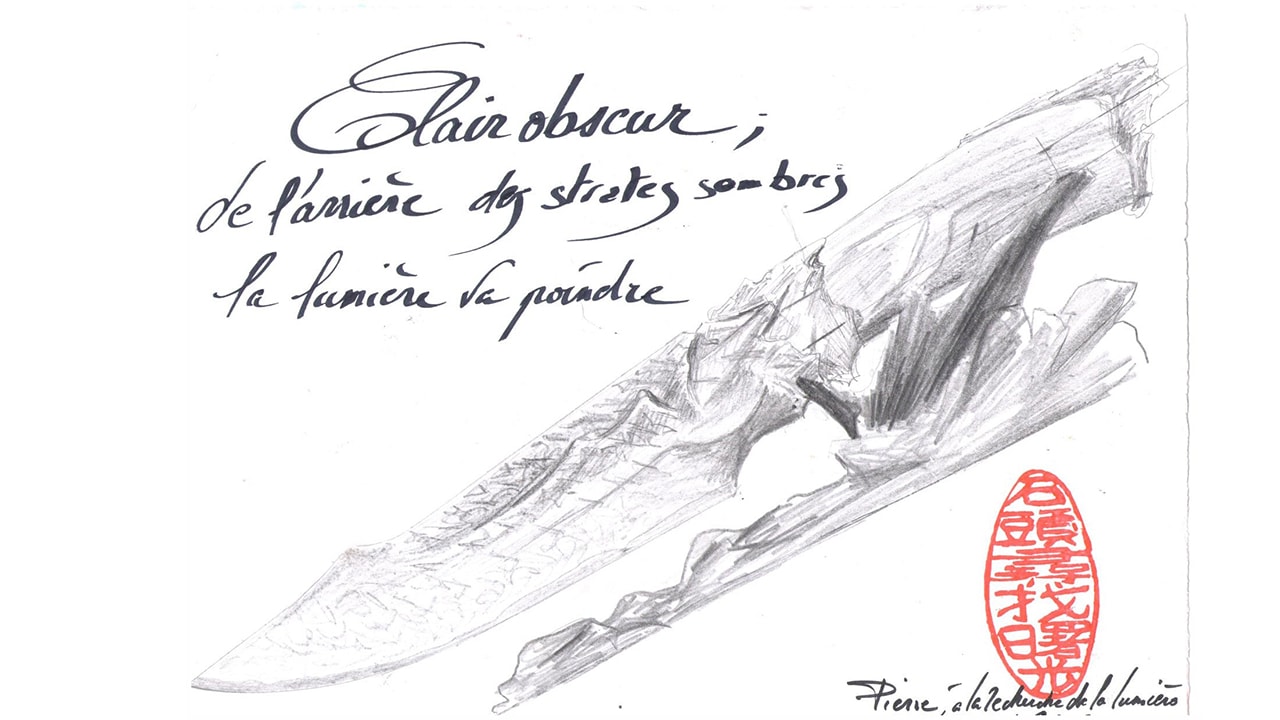 Clair obscur ;
de l'arrière des strates sombres
la lumière va poindre
石頭尋找曙光
Pierre, à la recherche de la lumière